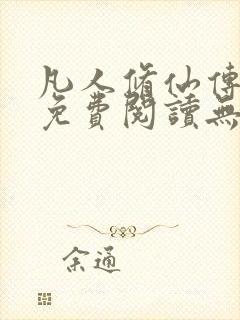 凡人修仙傳
免費閱讀無
余通